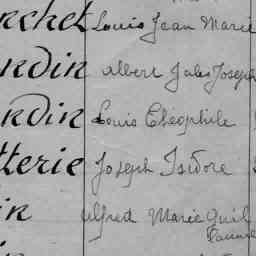 rchet Louis Jean Marie
ndin Albert Jules Joseph
ndin Louis Théophile
tterie Joseph Isidore
in Alfred Marie Guil
laume
in